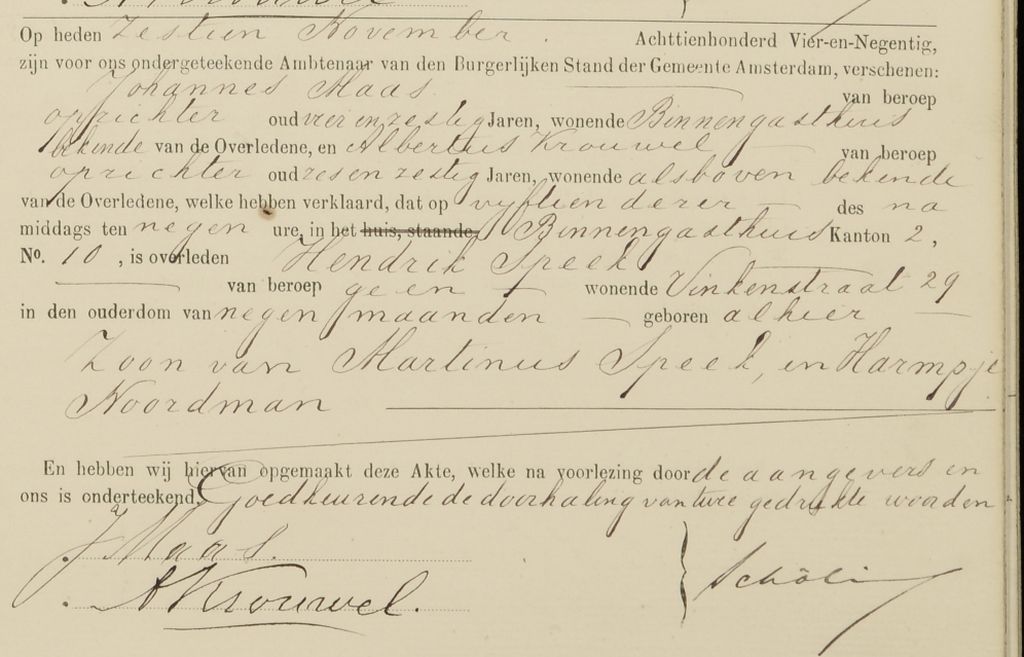 Op heden zestien November. Achttienhonderd Vier-en-Negentig,
zijn voor ons ondergeteekende Ambtenaar van den Burgerlijken Stand der Gemeente Amsterdam, verschenen:
Johannes Maas van beroep
oprichter oud vier en zestig Jaren, wonende Binnengasthuis
bekende van de Overledene, en Albertus Krouwel van beroep
oprichter oud zes en zestig Jaren, wonende alsboven bekende
van de Overledene, welke hebben verklaard, dat op vijftien dezer des na
middags ten negen ure, in het huis, staande, Binnengasthuis Kanton 2,
No. 10, is overleden Hendrik Speek
van beroep geen wonende Vinkenstraat 29
in den ouderdom van negen maanden geboren alhier
Zoon van Martinus Speek, en Harmpje
Noordman
En hebben wij hiervan opgemaakt deze Akte, welke na voorlezing door de aangevers en
ons is onderteekend. Goedkeurende de doorhaling van twee gedrukte woorden
J Maas.
A Krouwel.